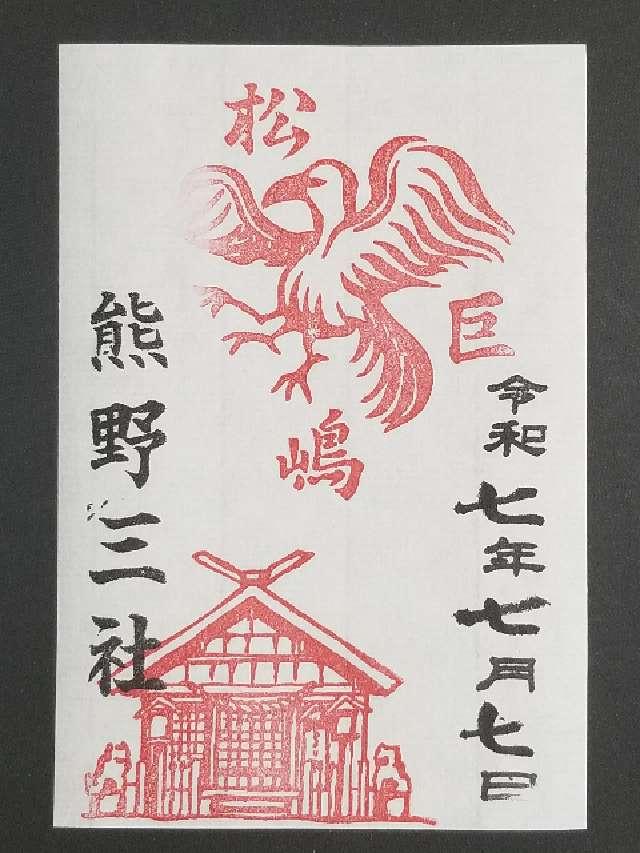 松
巨
嶋
令和七年七月七日
熊野三社